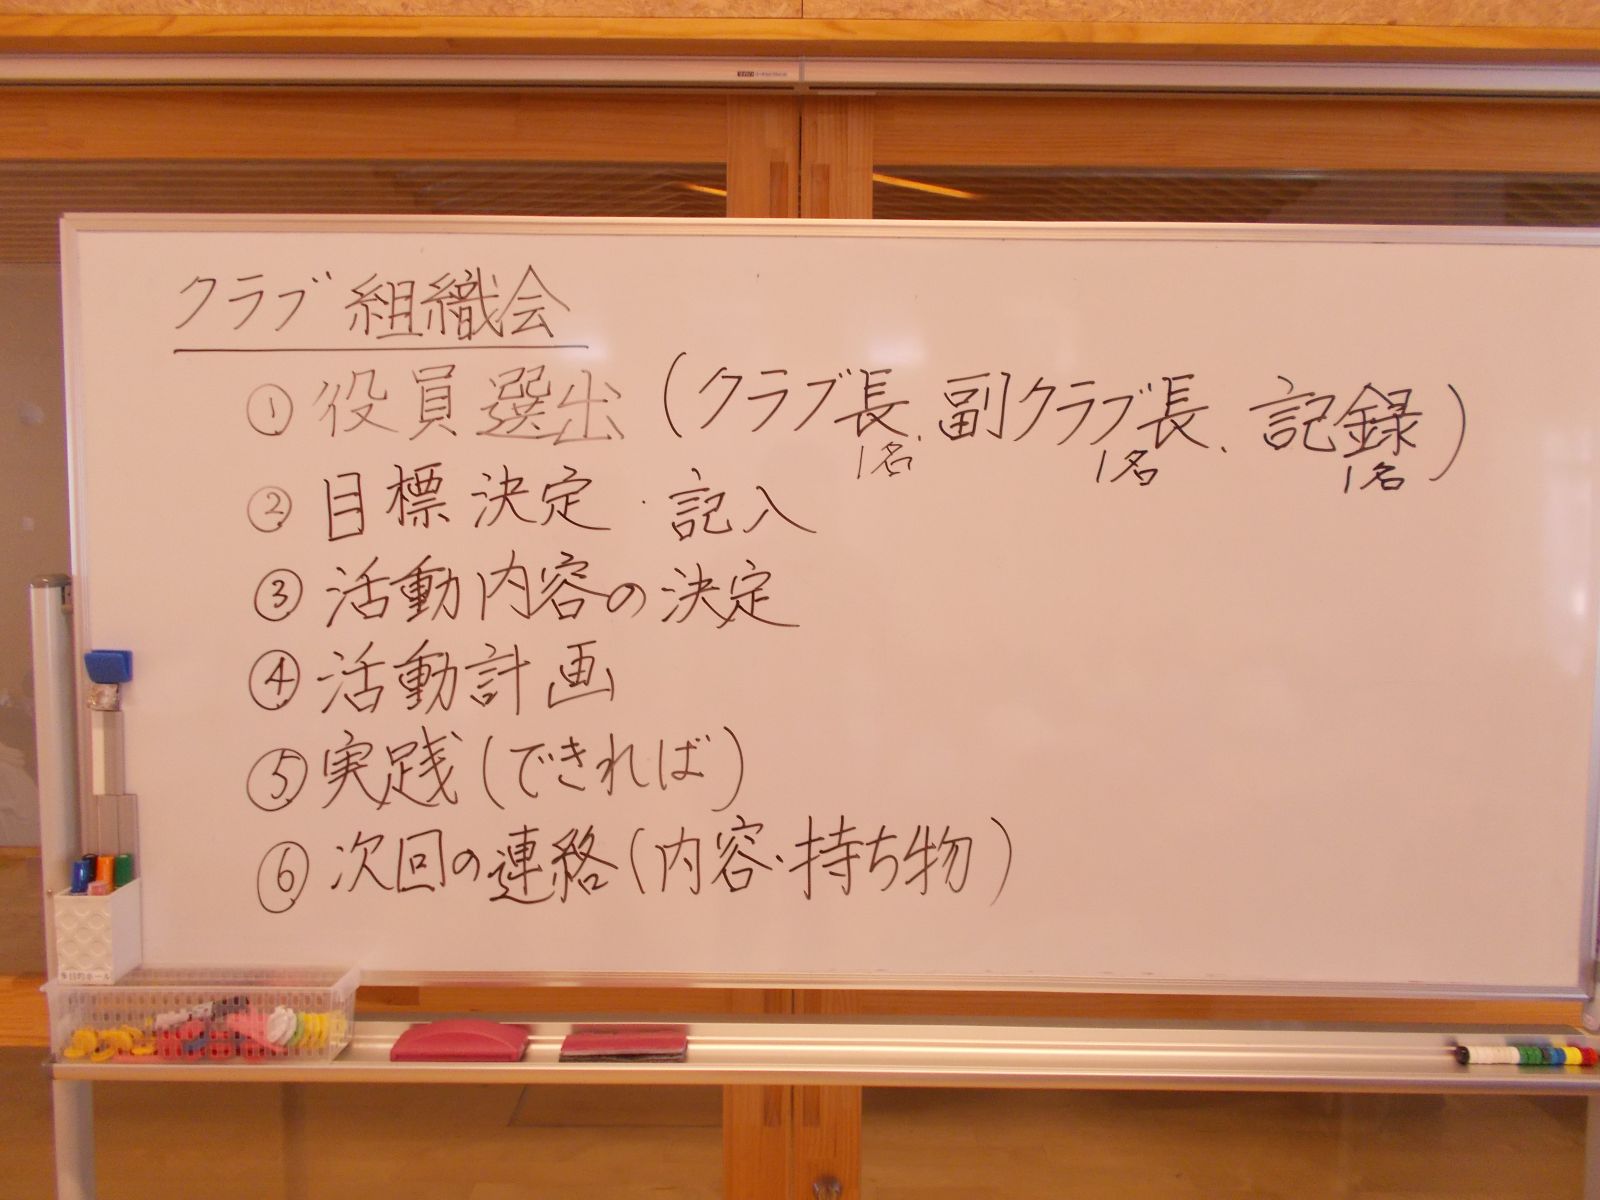 クラブ組織会
①役員選出（クラブ長、副クラブ長、記録）
1名 1名 1名
②目標決定・記入
③活動内容の決定
④活動計画
⑤実践（できれば）
⑥次回の連絡（内容・持ち物）
多目的ホール